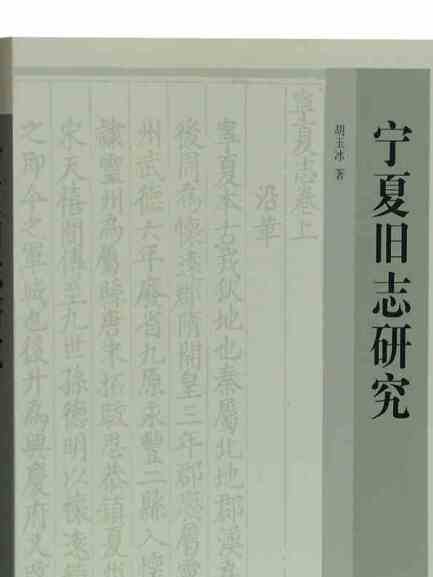 宁夏旧志研究
胡玉冰 著
寧夏志卷上
沿革
寧夏本古戎狄地也秦屬北地郡漢
後周為懷遠郡隋開皇三年郡廢屬靈
州武德六年廢省九原永豐二縣入懷
隸靈州為屬縣唐末拓跋思恭鎮夏州
宋天禧間傳至九世孫德明以懷遠
之即今之軍城也後升為興慶府又